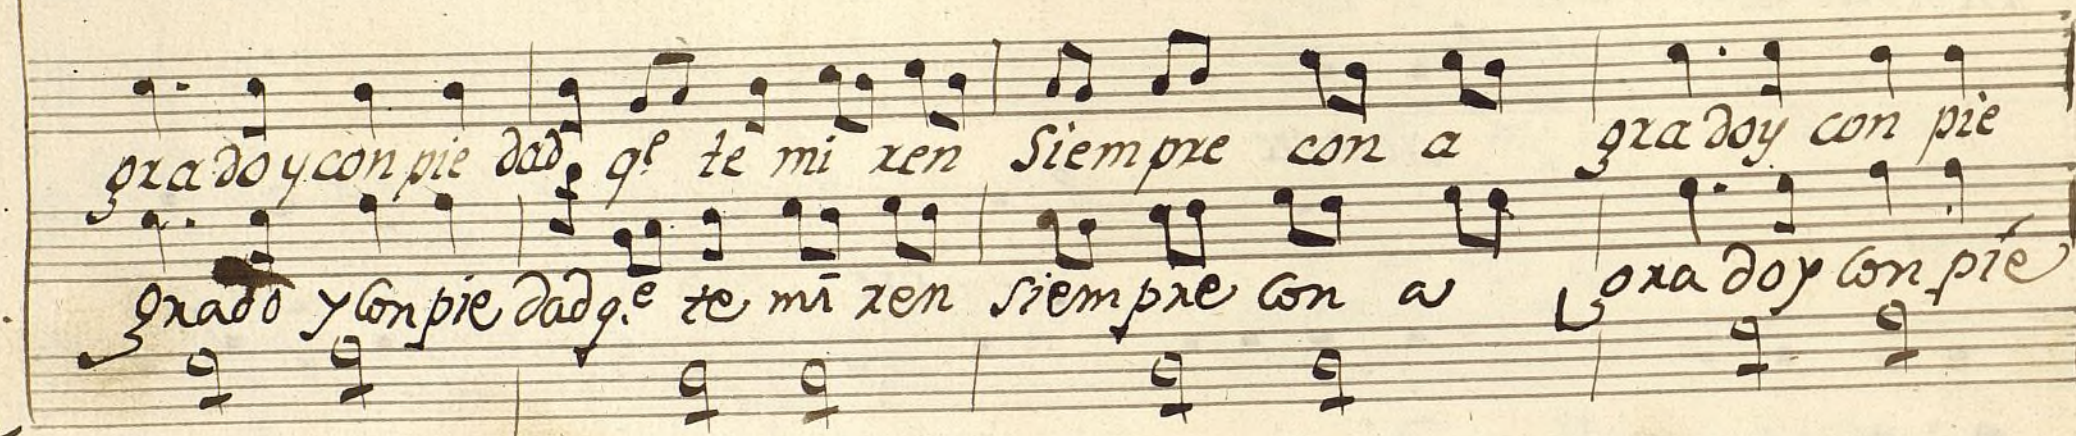 grado y con pie dad qe te mi ren Siempre con a grado y con pie
grado y con pie dad qe te mi ren siempre con a grado y con pie